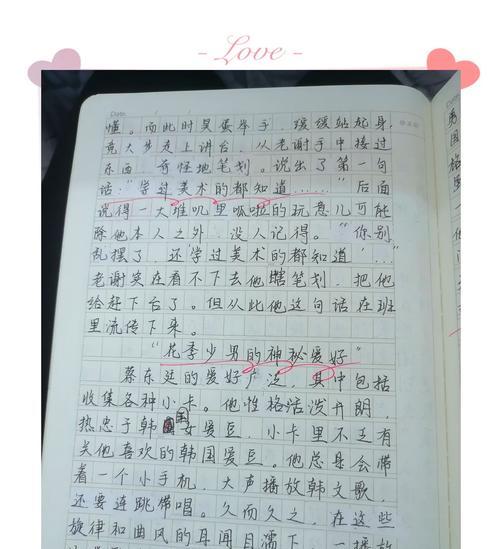 - Love -
Date
懂。而此时吴蛋举手，缓缓站起身，
竟大步走上讲台，从老谢手中接过
东西，奇怪地笔划。说出了第一句
话："学过美术的都知道……"后面
说得一大堆叽里呱啦的玩意儿可能
除他本人之外，没人记得。"你别
乱摆了，还'学过美术的都知道'…"
老谢实在看不下去他瞎笔划，把他
给赶下台了。但从此他这句话在班
里流传下来。
"花季少男的神秘爱好"
蔡东廷的爱好广泛，其中包括
收集各种小卡。他性格活泼开朗，
热忠于韩国女爱豆，小卡里不乏有
关他喜欢的韩国爱豆。他总是会带
着一个小手机，大声播放韩文歌，
还要连跳带唱。久而久之，在这些
旋律和曲风的耳闻目濡下，一播放